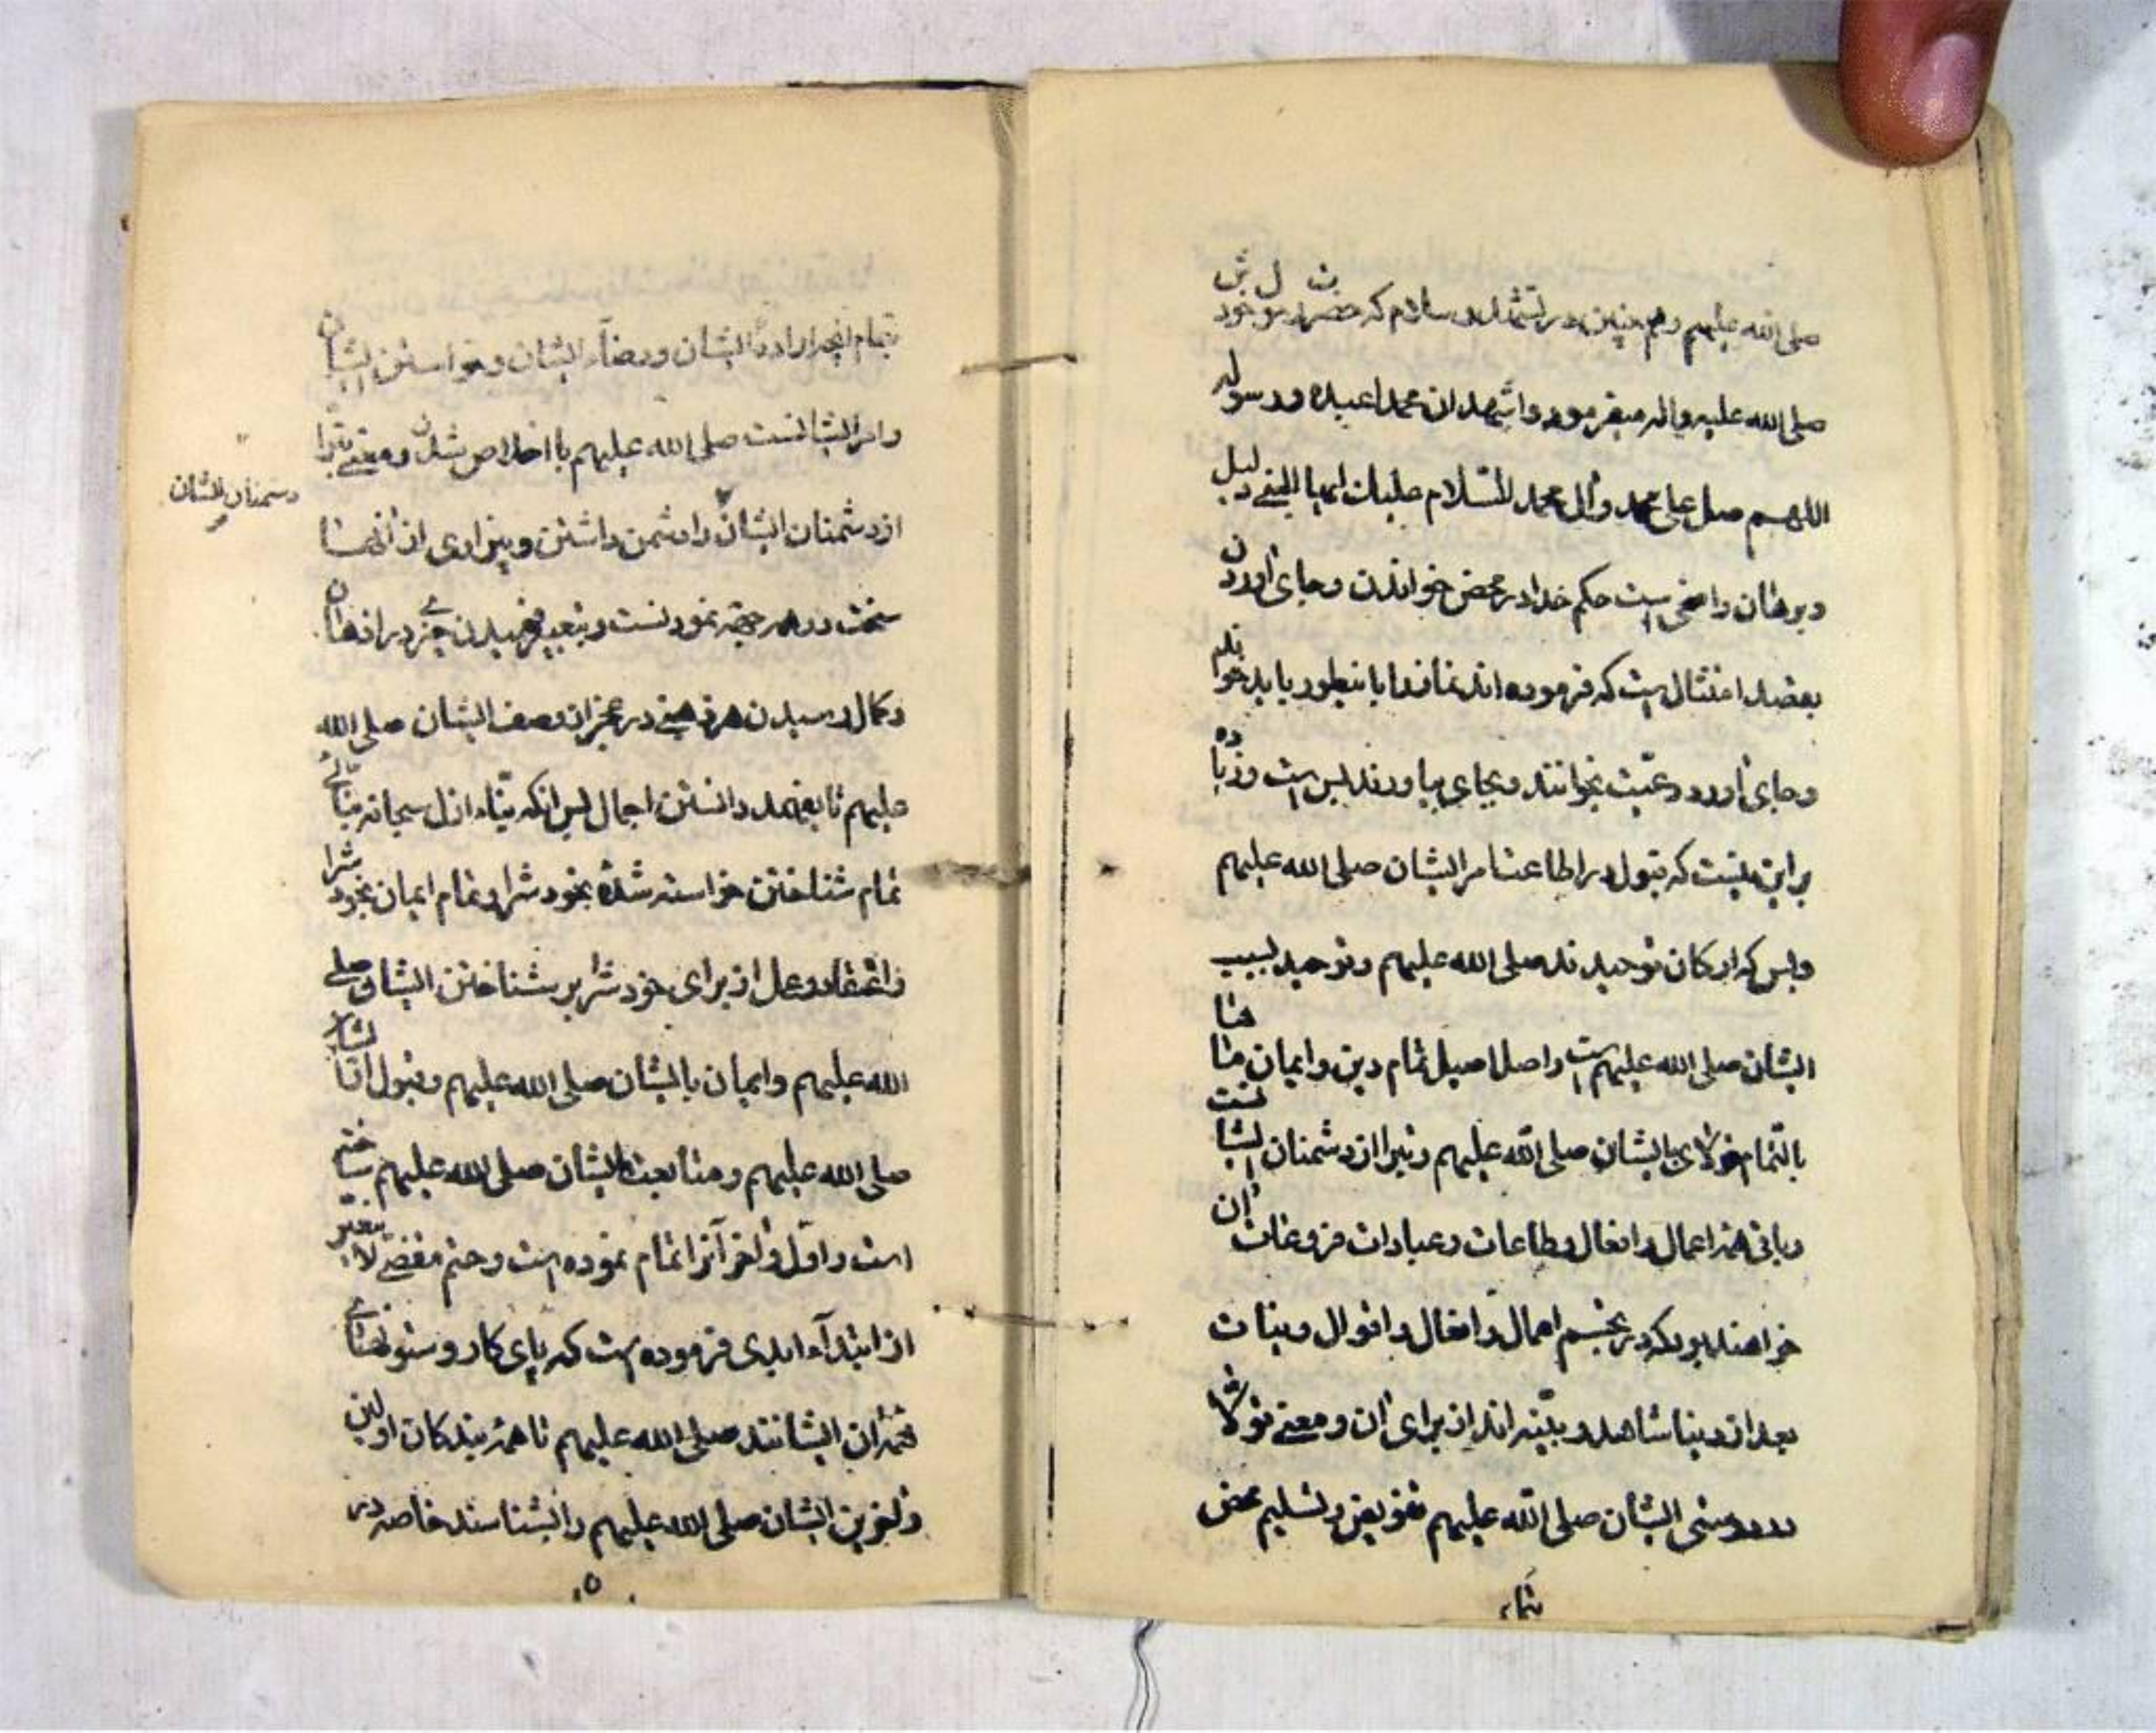 صلی الله علیهم وهم چنین در تشهد و سلام که حضرت رسول خودش
صلی الله علیه واله میفرمود واشهد ان محمدا عبده ورسوله
اللهم صل علی محمد وآل محمد السلام علیک ایها النبی دلیل
وبرهان واضحی است حکم خدا در محض خواندن وبجای آوردن
بقصد امتثال است که فرموده اند نماز را باینطور باید خواند
وبجای آورد رعیت بخوانند وبجای بیاورند بس است وزیاده
براین نیست که قبول در اطاعت امر ایشان صلی الله علیهم
وبس که ارکان توحیدند صلی الله علیهم وتوحید بسبب
ایشان صلی الله علیهم است واصل اصیل تمام دین وایمان همانا
بالتمام تولای بایشان صلی الله علیهم وتبرا از دشمنان ایشانست
وباقی همه اعمال وافعال وطاعات وعبادات فروعات آن
خواهند بود که در تجسم اعمال وافعال واقوال ونیات
بعد از دنیا شاهد وبینه اند از برای آن ومعنی تولا
دوستی ایشان صلی الله علیهم تفویض وتسلیم محض
تمام
تمام انچه اراده ایشان ورضاء ایشان وخواستن ایشان
وامر ایشانست صلی الله علیهم با اخلاص شدن ومعنی تبرا
از دشمنان ایشان را دشمن داشتن وبیزاری از آنها
دشمنان ایشان
سخت در همه جهة نمودنست وتبعیر فهمیدن عجز در اذهان
وکمال رسیدن هر ذهنی در عجز از وصف ایشان صلی الله
علیهم تا بفهمد دانستن اجمال پس انکه بناء ازل سبحانه بنای
تمام شناختن خواسته شده بخود شرا وتمام ایمان بخود شرا
واعتقاد وعمل از برای خود شرا بر شناختن ایشان صلی
الله علیهم وایمان بایشان صلی الله علیهم وقبول از ایشان
صلی الله علیهم ومتابعت ایشان صلی الله علیهم ساخته
است واول وآخر آنرا تمام نموده است وحتم مقضی لا یغیر
از ابتداء ابدی فرموده است که پای کار وستونهای
ایشانند صلی الله علیهم تا همه بندکان اولین
وآخرین ایشان صلی الله علیهم را بشناسند خاصه در
۵